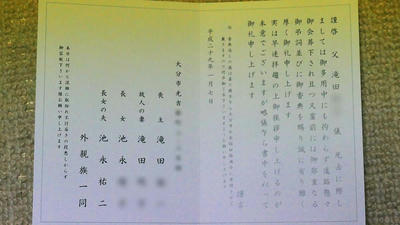 謹啓 父 滝田 儀 死去に際し
ましては御多用中にも拘わらず遠路態々
御会葬下され且つ又霊前には御鄭重なる
御弔詞並びに御香典を賜り誠に有り難く
厚く御礼申し上げます
実は早速拝趨の上御挨拶申し上げるのが
本意でございますが略儀乍ら書中を以って
御礼申し上げます
謹言
平成二十九年一月七日
大分市光吉
喪主 滝田
故人の妻 滝田
長女 池永
長女の夫 池永祐二
外親族一同
本日は何かと混雑に取り紛れ不行届きの段悪しからず
御容赦下さいます様お願い申し上げます